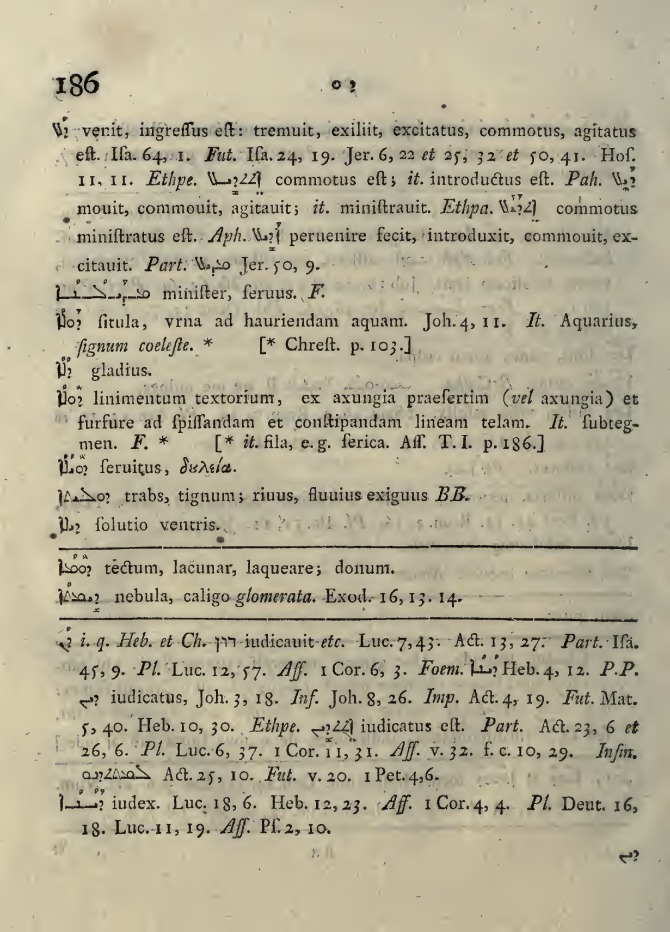 186 ܘ ܕ
ܕܠ venit, ingreſſus eſt: tremuit, exiliit, excitatus, commotus, agitatus
eſt. Iſa. 64, 1. Fut. Iſa. 24, 19. Jer. 6, 22 et 25, 32 et 50, 41. Hoſ.
11, 11. Ethpe. commotus eſt; it. introductus eſt. Pah.
mouit, commouit, agitauit; it. miniſtrauit. Ethpa. commotus
miniſtratus eſt. Aph. peruenire fecit, introduxit, commouit, ex-
citauit. Part. Jer. 50, 9.
miniſter, ſeruus. F.
ſitula, vrna ad hauriendam aquam. Joh. 4, 11. It. Aquarius,
ſignum coeleſte. * [* Chreſt. p. 103.]
gladius.
linimentum textorium, ex axungia praeſertim (vel axungia) et
furfure ad ſpiſſandam et conſtipandam lineam telam. It. ſubteg-
men. F. * [* it. fila, e. g. ſerica. Aſſ. T. I. p. 186.]
ſeruitus, δυλεία.
trabs, tignum; riuus, fluuius exiguus BB.
ſolutio ventris.
tectum, lacunar, laqueare; donum.
nebula, caligo glomerata. Exod. 16, 13. 14.
i. q. Heb. et Ch. דון iudicauit etc. Luc. 7, 43. Act. 13, 27. Part. Iſa.
45, 9. Pl. Luc. 12, 57. Aff. 1 Cor. 6, 3. Foem. Heb. 4, 12. P.P.
iudicatus, Joh. 3, 18. Inf. Joh. 8, 26. Imp. Act. 4, 19. Fut. Mat.
5, 40. Heb. 10, 30. Ethpe. iudicatus eſt. Part. Act. 23, 6 et
26, 6. Pl. Luc. 6, 37. 1 Cor. 11, 31. Aff. v. 32. f. c. 10, 29. Infin.
Act. 25, 10. Fut. v. 20. 1 Pet. 4, 6.
iudex. Luc. 18, 6. Heb. 12, 23. Aff. 1 Cor. 4, 4. Pl. Deut. 16,
18. Luc. 11, 19. Aff. Pſ. 2, 10.